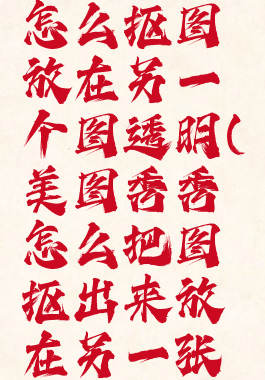 怎么抠图
放在另一
个图透明(
美图秀秀
怎么把图
抠出来放
在另一张